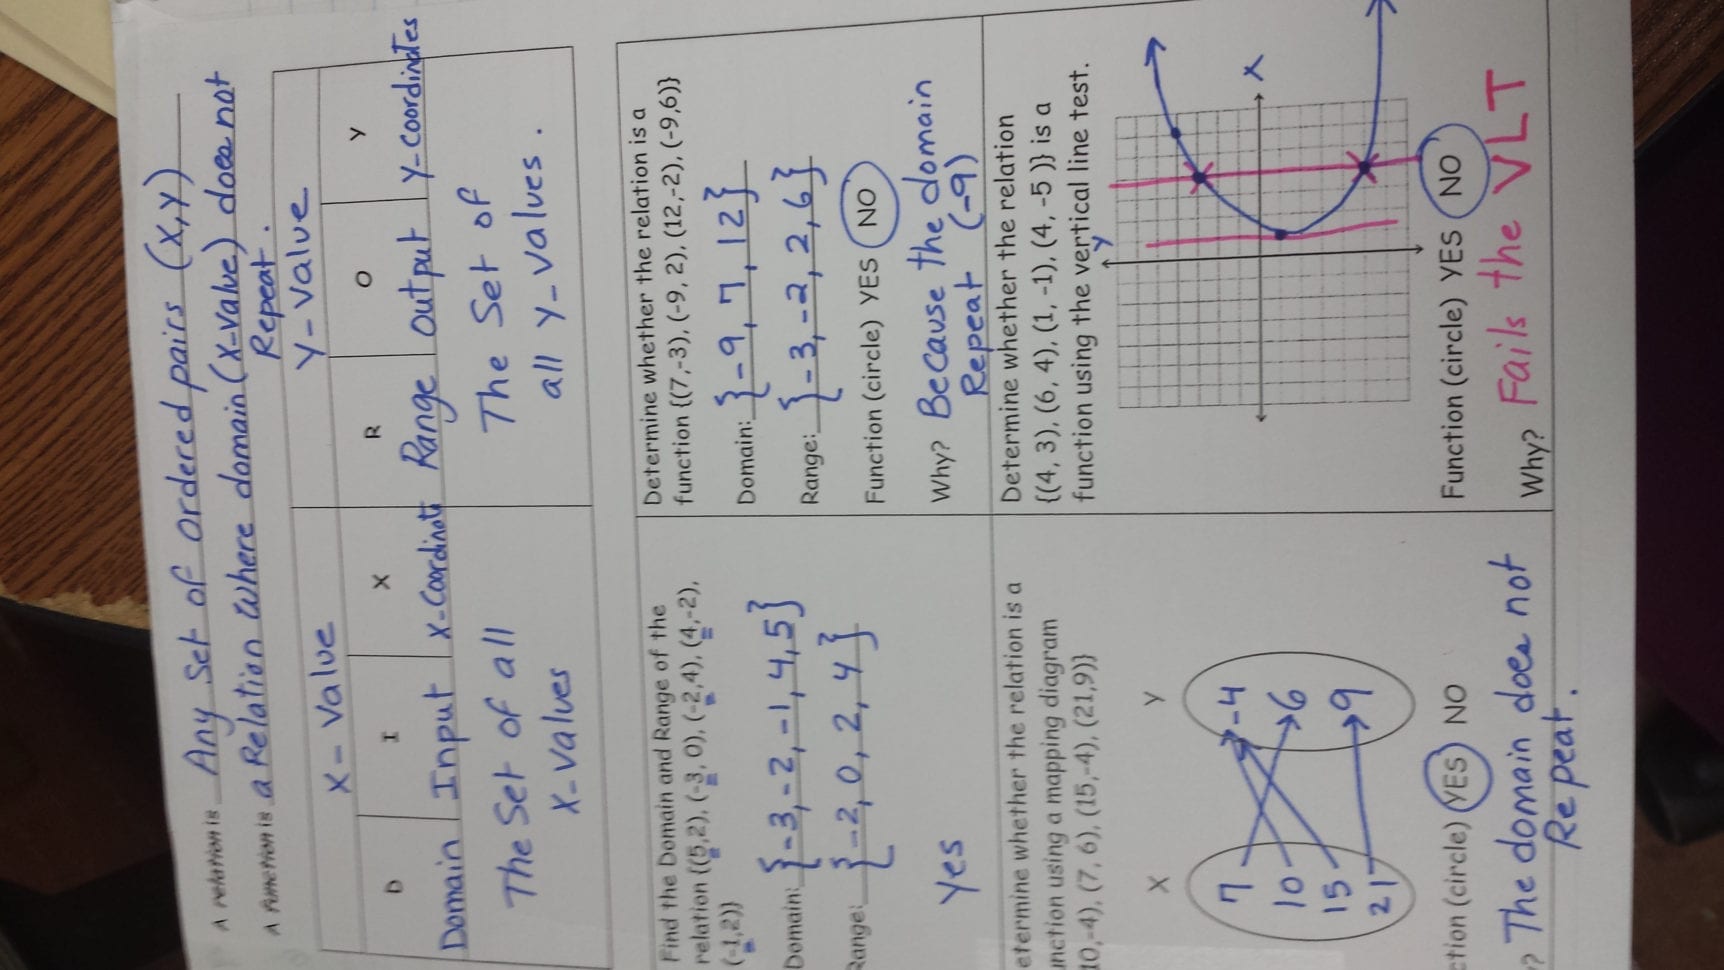 A relation is Any Set of ordered pairs (x,y)
A function is a Relation where domain (x-value) does not
Repeat.
X-Value Y-Value
D I X R O Y
Domain Input X-Coordinate Range Output Y-Coordinates
The Set of all
X-Values
The Set of
all Y-Values.
Find the Domain and Range of the
relation {(5,2), (-3, 0), (-2,4), (4,-2),
(-1,2)}
Domain: {-3,-2,-1,4,5}
Range: {-2,0,2,4}
Yes
Determine whether the relation is a
function {(7,-3), (-9, 2), (12,-2), (-9,6)}
Domain: {-9, 7, 12}
Range: {-3,-2, 2, 6}
Function (circle) YES NO
Why? Because the domain
Repeat (-9)
etermine whether the relation is a
unction using a mapping diagram
10,-4), (7, 6), (15,-4), (21,9)}
X Y
7 -4
10 6
15 9
21
ction (circle) YES NO
? The domain does not
Repeat.
Determine whether the relation
{(4, 3), (6, 4), (1, -1), (4, -5 )} is a
function using the vertical line test.
Y
X
Function (circle) YES NO
Why? Fails the VLT